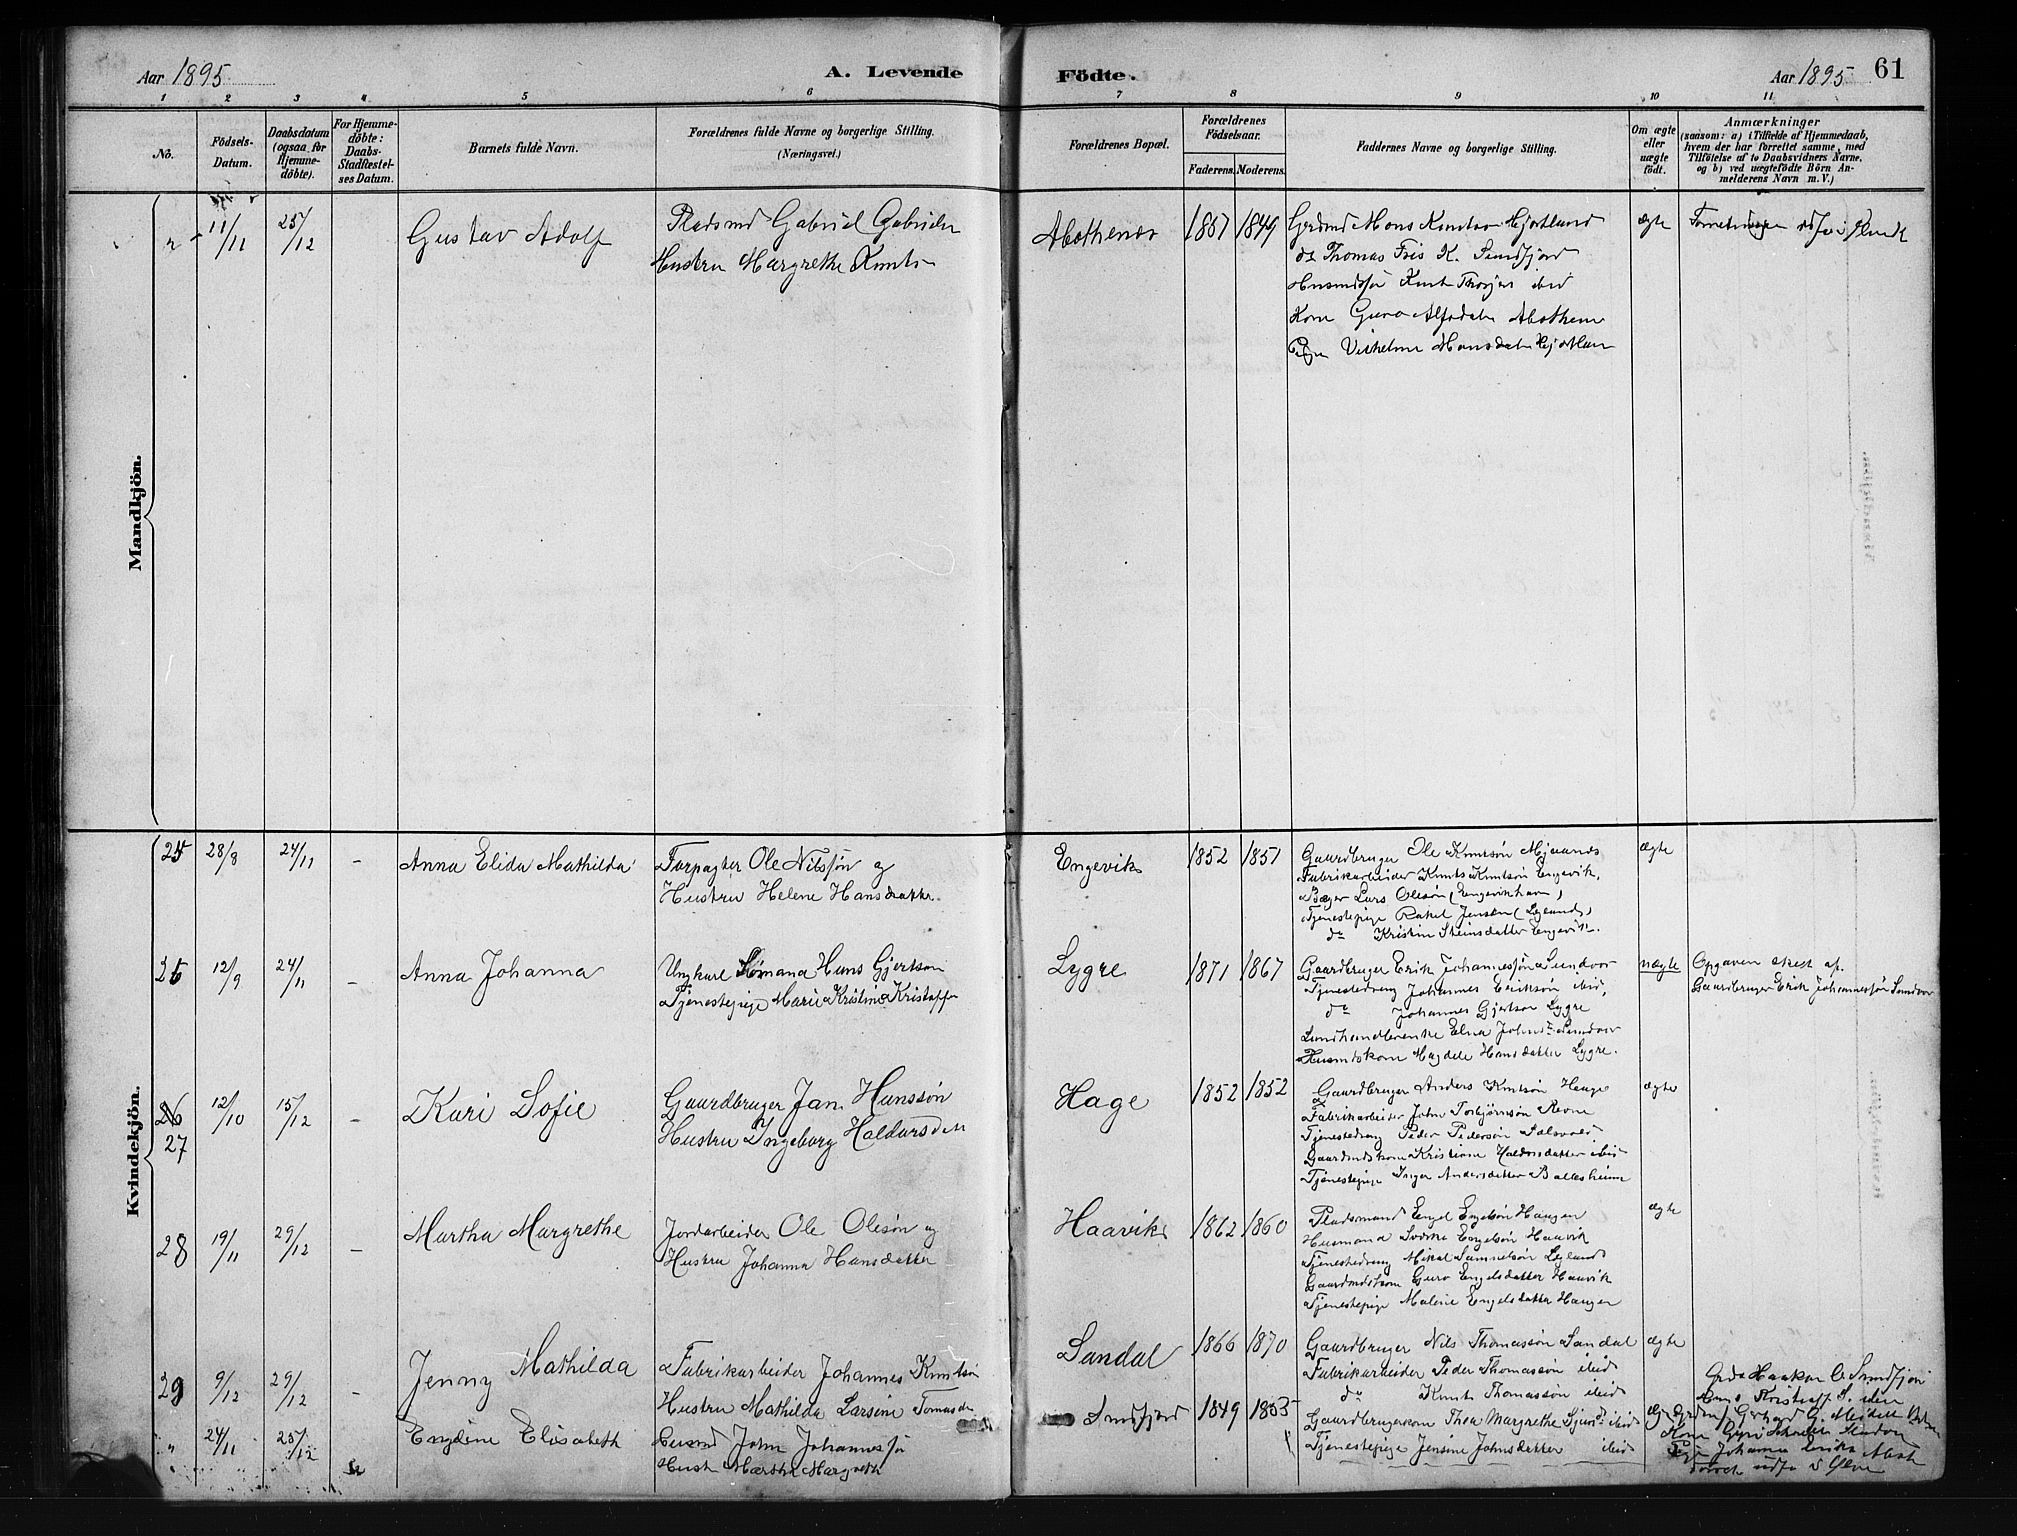 Aar 1895
A. Levende
Födte.
Aar 1895
61
1 2 3 4 5 6 7 8 9 10 11
No.
Födsels-
Datum.
Daabsdatum
(ogsaa for
Hjemme-
döbte).
For Hjemme-
döbte:
Daabs-
Stadfæstel-
ses Datum.
Barnets fulde Navn.
Forældrenes fulde Navne og borgerlige Stilling.
(Næringsvei.)
Forældrenes Bopæl.
Forældrenes
Födselsaar.
Faderens.
Moderens.
Faddernes Navne og borgerlige Stilling.
Om ægte
eller
uægte
födt.
Anmærkninger
(saasom: a) i Tilfælde af Hjemmedaab,
hvem der har forrettet samme, med
Tilföielse af to Daabsvidners Navne.
og b) ved uægtefödte Börn An-
melderens Navn m. V.)
Mandkjön.
11/11
25/12
Gustav Adolf
Pladsmd Gabriel Gabriels
Hustru Margrethe Knuts
1849
Mons Knutsøn Hjortland
do Thomas K. Sundfjord
Knut ibid
Kone Guro
Vilhelmine Monsdatter
ægte
Kvindekjön.
25
28/8
24/11
–
Anna Elida Mathilda
Forpagter Ole Nilssøn og
Hustru Helene Hansdatter
Engevik
1852
1851
Gaardbruger Ole Knutsøn Mjaanes
Fabrikarbeider Knut Knutsøn Engevik,
Lars Olesøn (Engevikhavn)
Tjenestepige Rakel Jensen (Lygland)
do Kristin Steinsdatter Engevik.
ægte
26
12/9
24/11
–
Anna Johanna
Ungkarl Sømand Hans Gjertsøn
Tjenestepige Marie Kristine Kristoff
Lygre
1871
1867
Gaardbruger Erik Johannessøn Sundvor
Tjenestedreng Johannes Eriksøn ibid,
do Johannes Gjertsøn Lygre
Landhandlerenke Elna Johnsdr Sundvor
Husmdskone Magdele Hansdatter Lygre.
uægte
Opgaven skeet af
Gaardbruger Erik Johannessøn Sundvor
26
27
12/10
15/12
–
Kari Sofie
Gaardbruger Jan Hanssøn
Hustru Ingeborg Haldorsdtr
Hage
1852
1852
Gaardbruger Anders Knutsøn Hauge
Fabrikarbeider John Torbjørnsøn Revne
Tjenestedreng Peder Pedersøn
Gaardmdskone Kristiane Haldorsdatter ibid
Tjenestepige Inger Andersdatter Ballesheim
ægte
28
19/11
29/12
–
Martha Margrethe
Jordarbeider Ole Olesøn og
Hustru Johanna Hansdatter
Haavik
1862
1860
Pladsmand Engel Engelsøn Haugen
Husmand Sverke Engelsøn Haavik
Tjenestedreng Mikal Samuelsøn Lygland
Gaardmdskone Guro Engelsdatter Haavik
Tjenestepige Malene Engelsdatter Haugen
ægte
29
9/12
29/12
–
Jenny Mathilda
Fabrikarbeider Johannes Knutsøn
Hustru Mathilda Larsine Tomasdr
Sandal
1866
1870
Gaardbruger Nils Thomassøn Sandal
Fabrikarbeider Peder Thomassøn ibid
do Knut Thomassøn ibid
Gaardbrugerkone Thea Margrethe Sjursdr ibid
Tjenestepige Jensine Johnsdatter ibid
ægte
24/11
25/12
Engeline Elisabeth
Husmd John Johannessø
Hust Martha Margreth
Sundfjord
1849
Haakon O. Sundfjord
Kristoff
Johanna